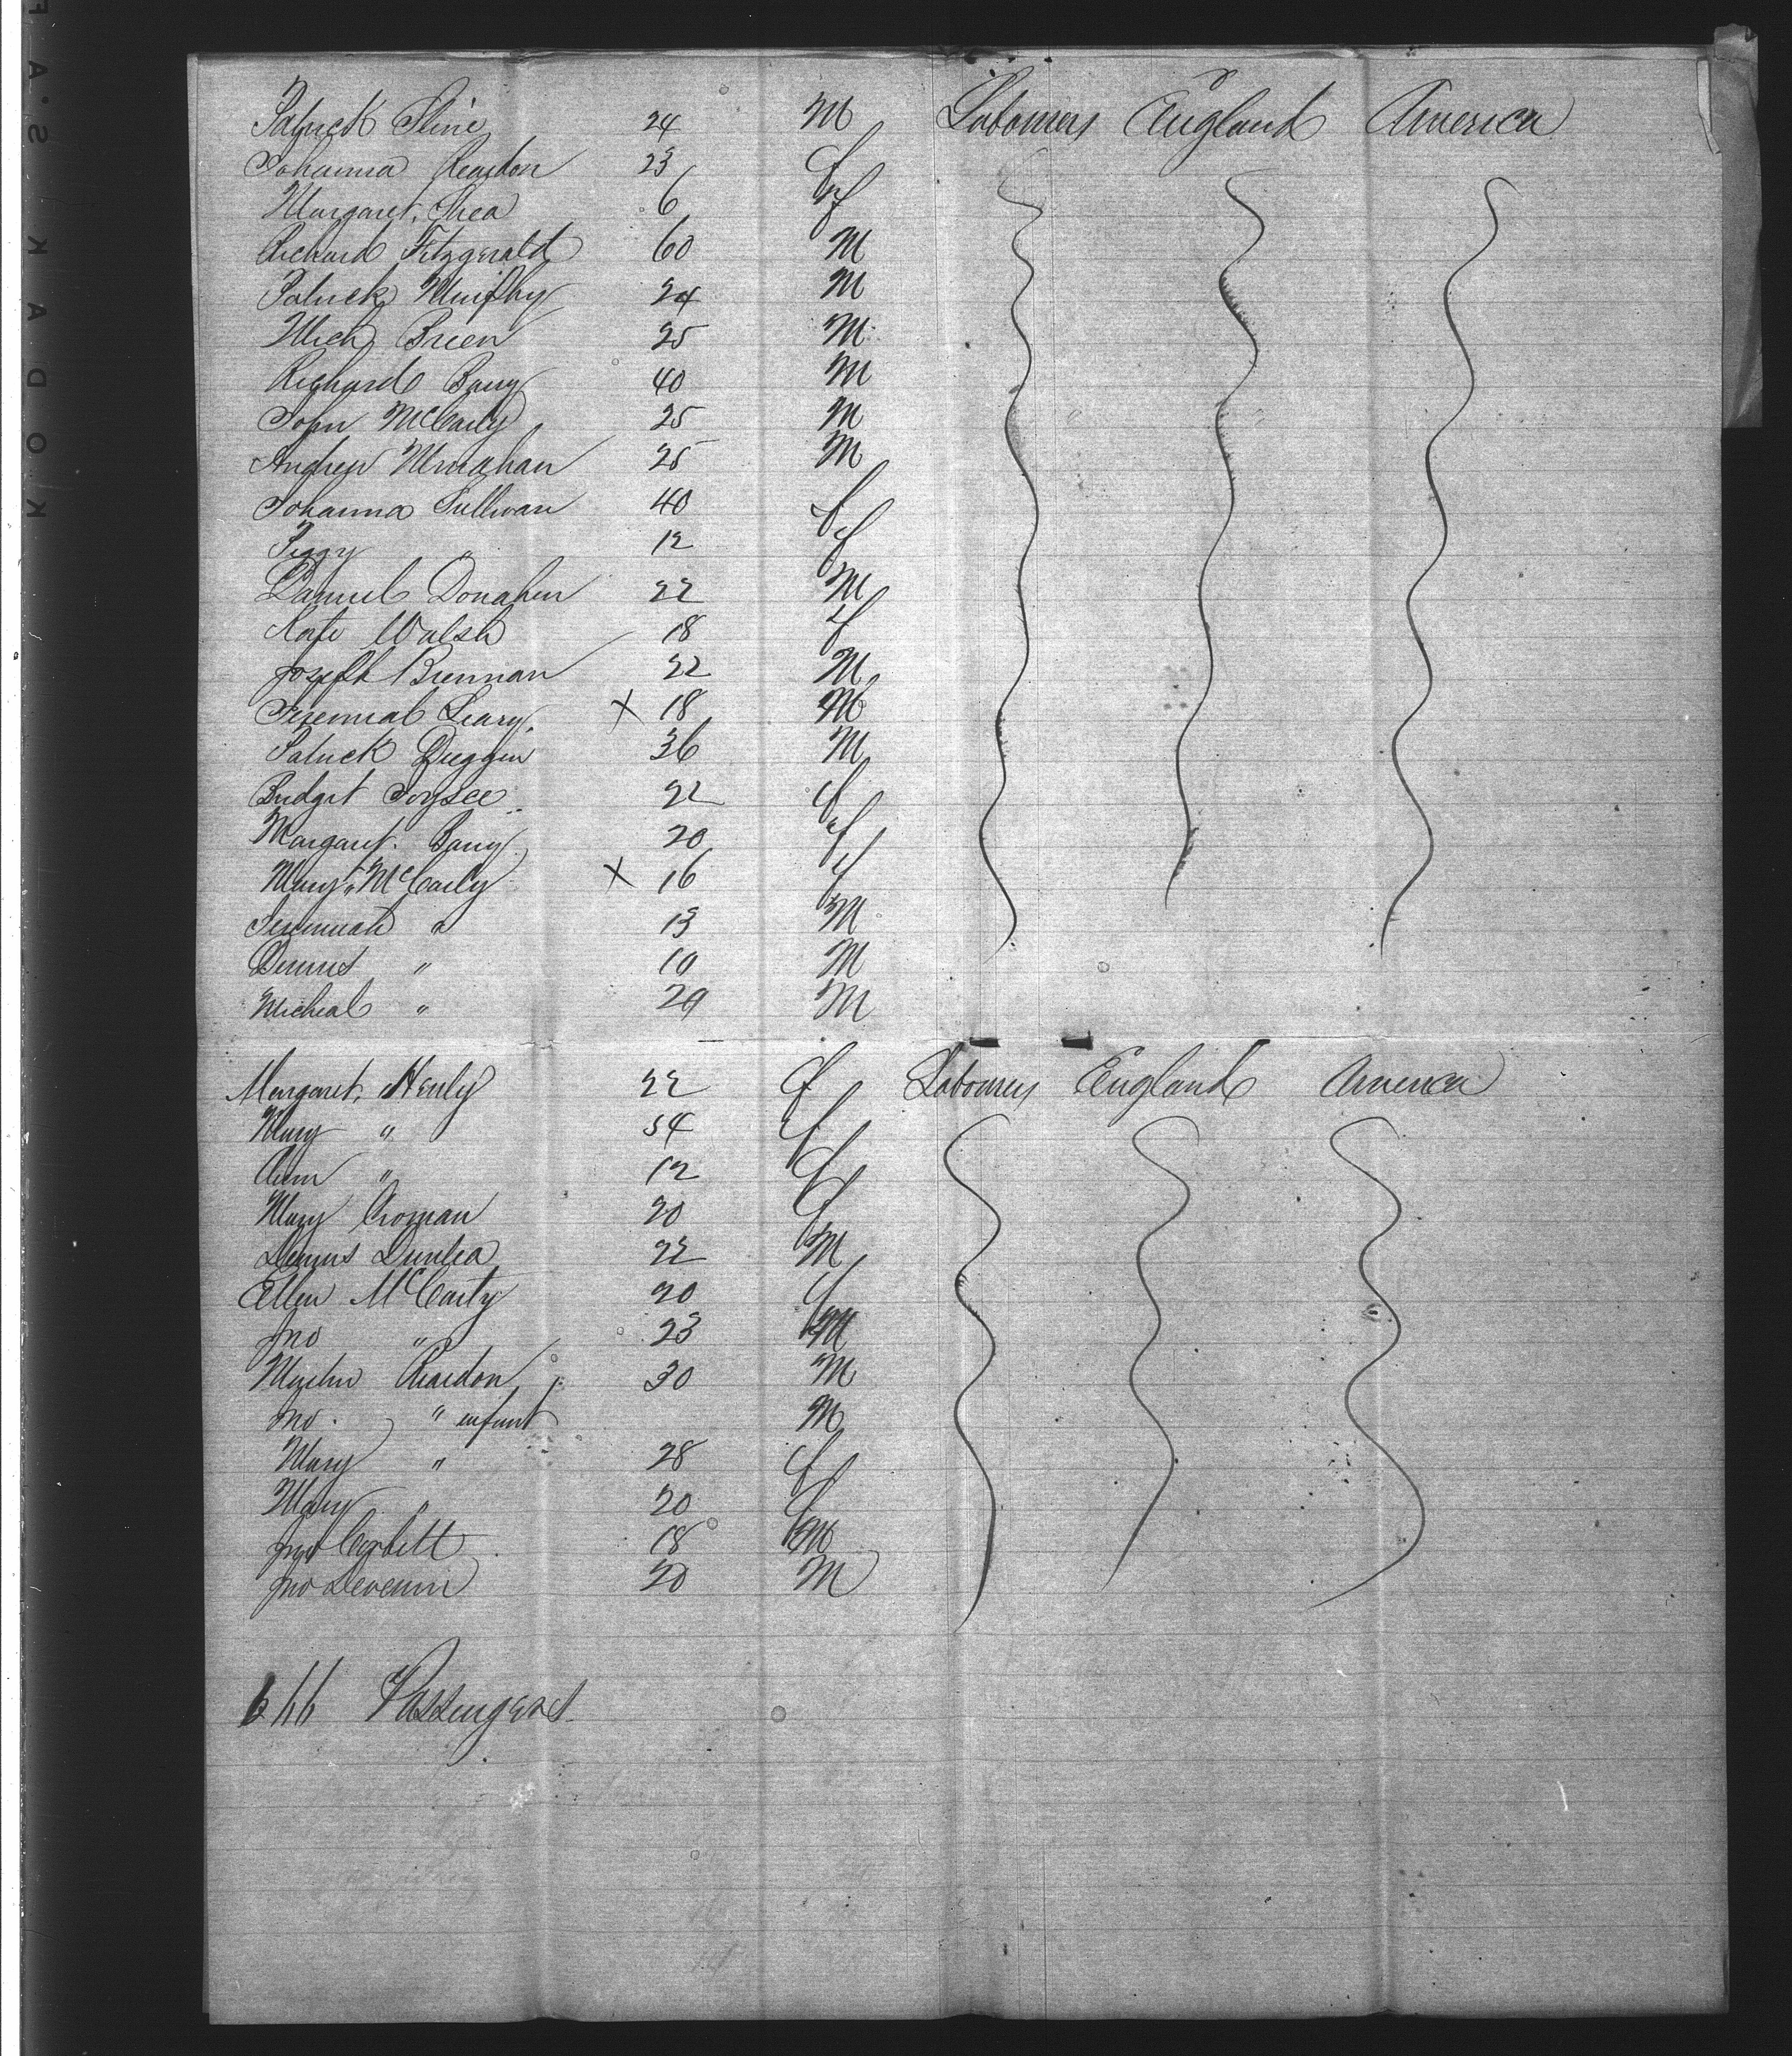 Patrick Sline 24 M Labourers England America
Johanna Reardon 23 f
Margaret Shea 6 f
Richard Fitzgerald 60 M
Patrick Murphy 24 M
Mich Brien 25 M
Richard Barry 40 M
John McCarty 25 M
Andrew Monahan 25 M
Johanna Sullivan 40 f
Peggy " 12 f
Daniel Donahen 22 M
Kate Walsh 18 f
Joseph Brennan 22 M
Jeremiah Leary X 18 M
Patrick Duggin 36 M
Bridget 22 f
Margaret Barry 20 f
Mary McCarty X 16 f
Jeremiah " 13 M
Dennis " 10 M
Micheal " 29 M
Margaret Henly 22 f Labourers England America
Mary " 54 f
Ann " 12 f
Mary Croman 20 f
Dennis Dunlea 22 M
Ellen McCarty 20 f
Jno " 23 M
Reardon 30 M
Jno " infant M
Mary " 28 f
Mary 20 f
Jno Corbett 18 M
Jno 20 M
666 Passengers
KODAK A.S